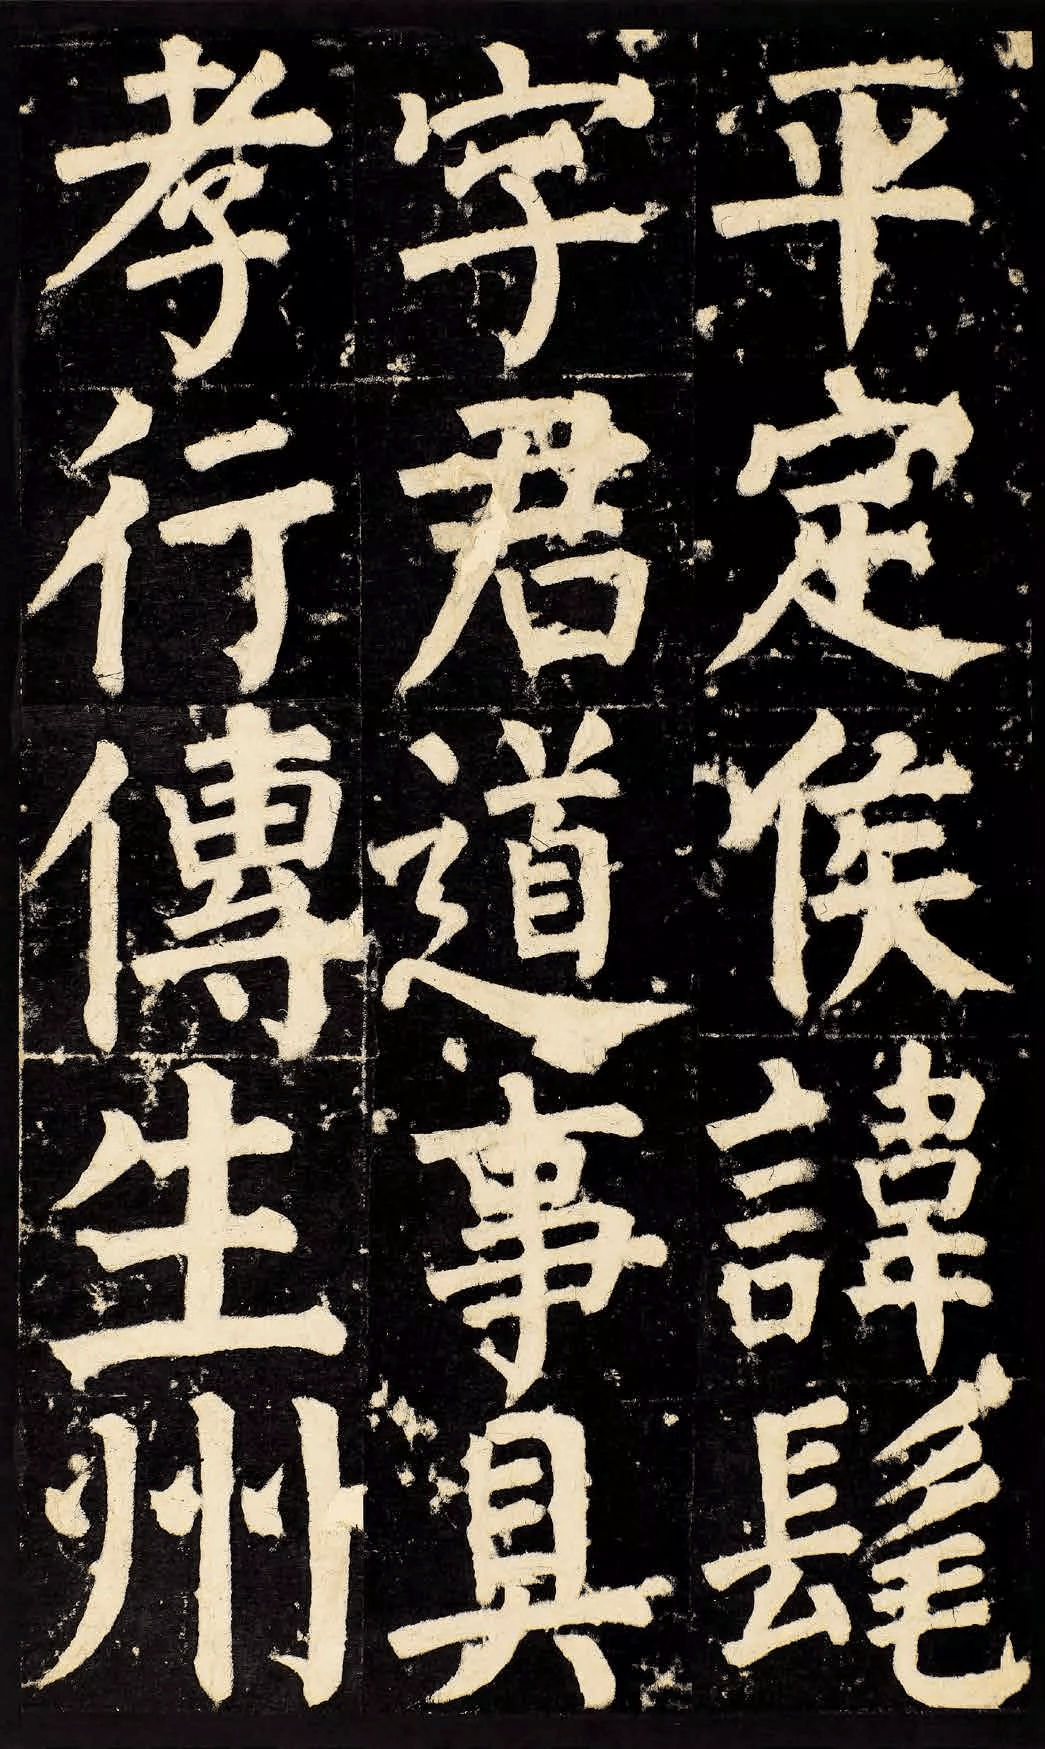 平定侯諱髦
字君道事具
孝行傳生州